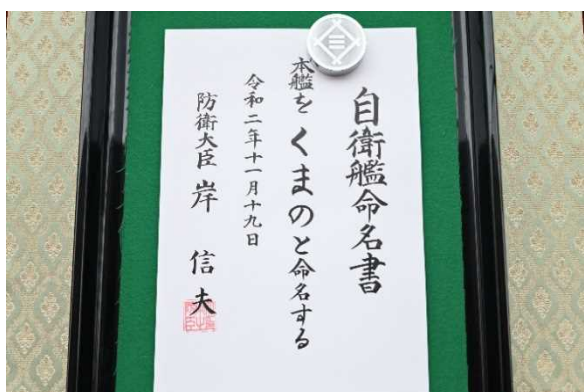 自衛艦命名書
本艦を くまのと命名する
令和二年十一月十九日
防衛大臣 岸 信夫